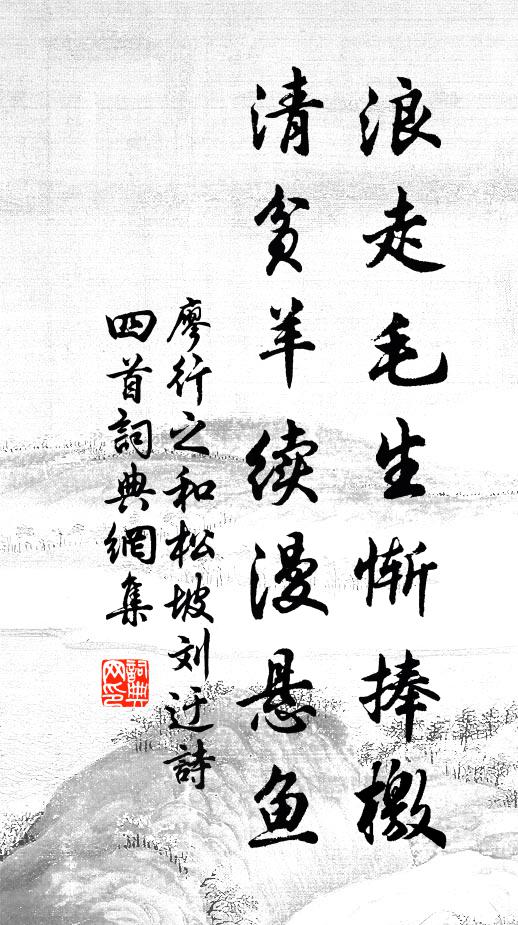 浪走毛生惭捧檄
清贫羊续漫悬鱼
廖行之和松坡刘迂詩
四首詞典網集
詞典網印